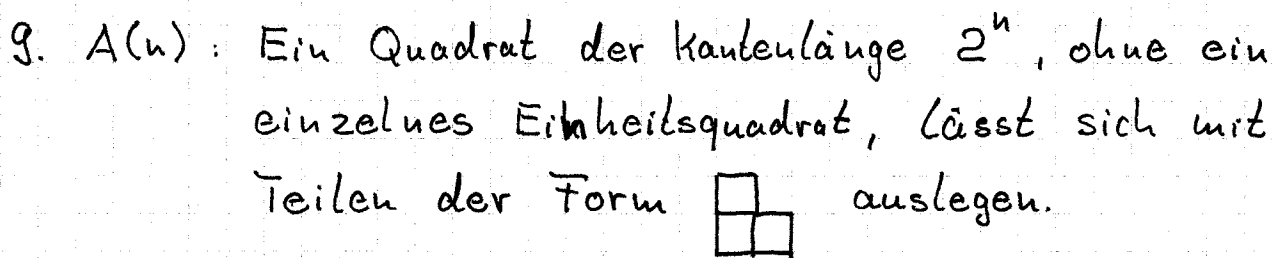 9. A(n): Ein Quadrat der Kantenlänge 2ⁿ, ohne ein
einzelnes Einheitsquadrat, lässt sich mit
Teilen der Form auslegen.